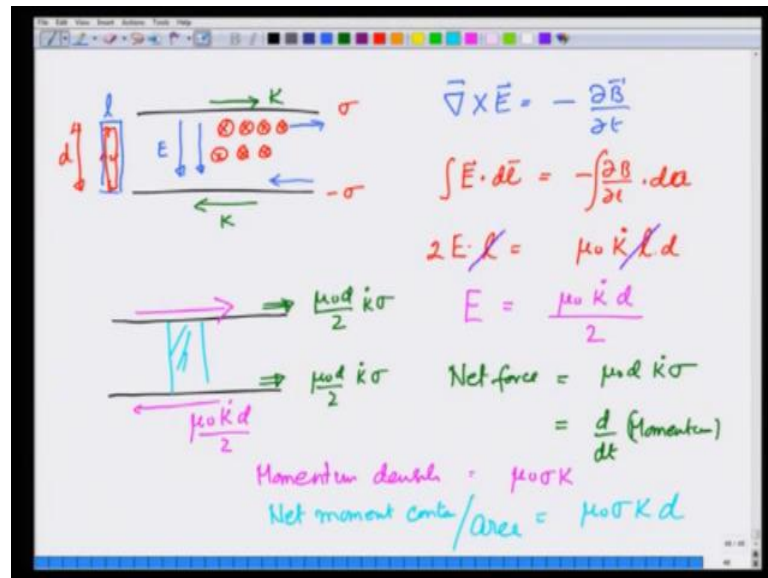 File Edit View Insert Actions Tools Help
K
σ
l
d
E
-σ
K
∇⃗ × E⃗ = - ∂B⃗/∂t
∫ E⃗ · dl⃗ = - ∫ ∂B/∂t · da
2 E · l = μ₀ K̇ l · d
E = μ₀ K̇ d / 2
μ₀d/2 k̇σ
μ₀d/2 k̇σ
μ₀ K̇ d / 2
Net force = μ₀d k̇σ
= d/dt (Momentum)
Momentum = μ₀σK
Net moment /area = μ₀σ K d